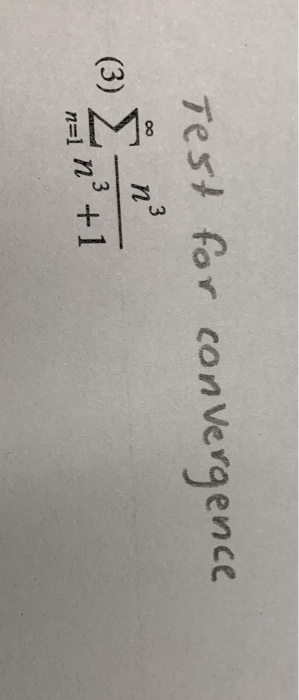 Test for convergence
(3) \sum_{n=1}^{\infty} \frac{n^3}{n^3+1}